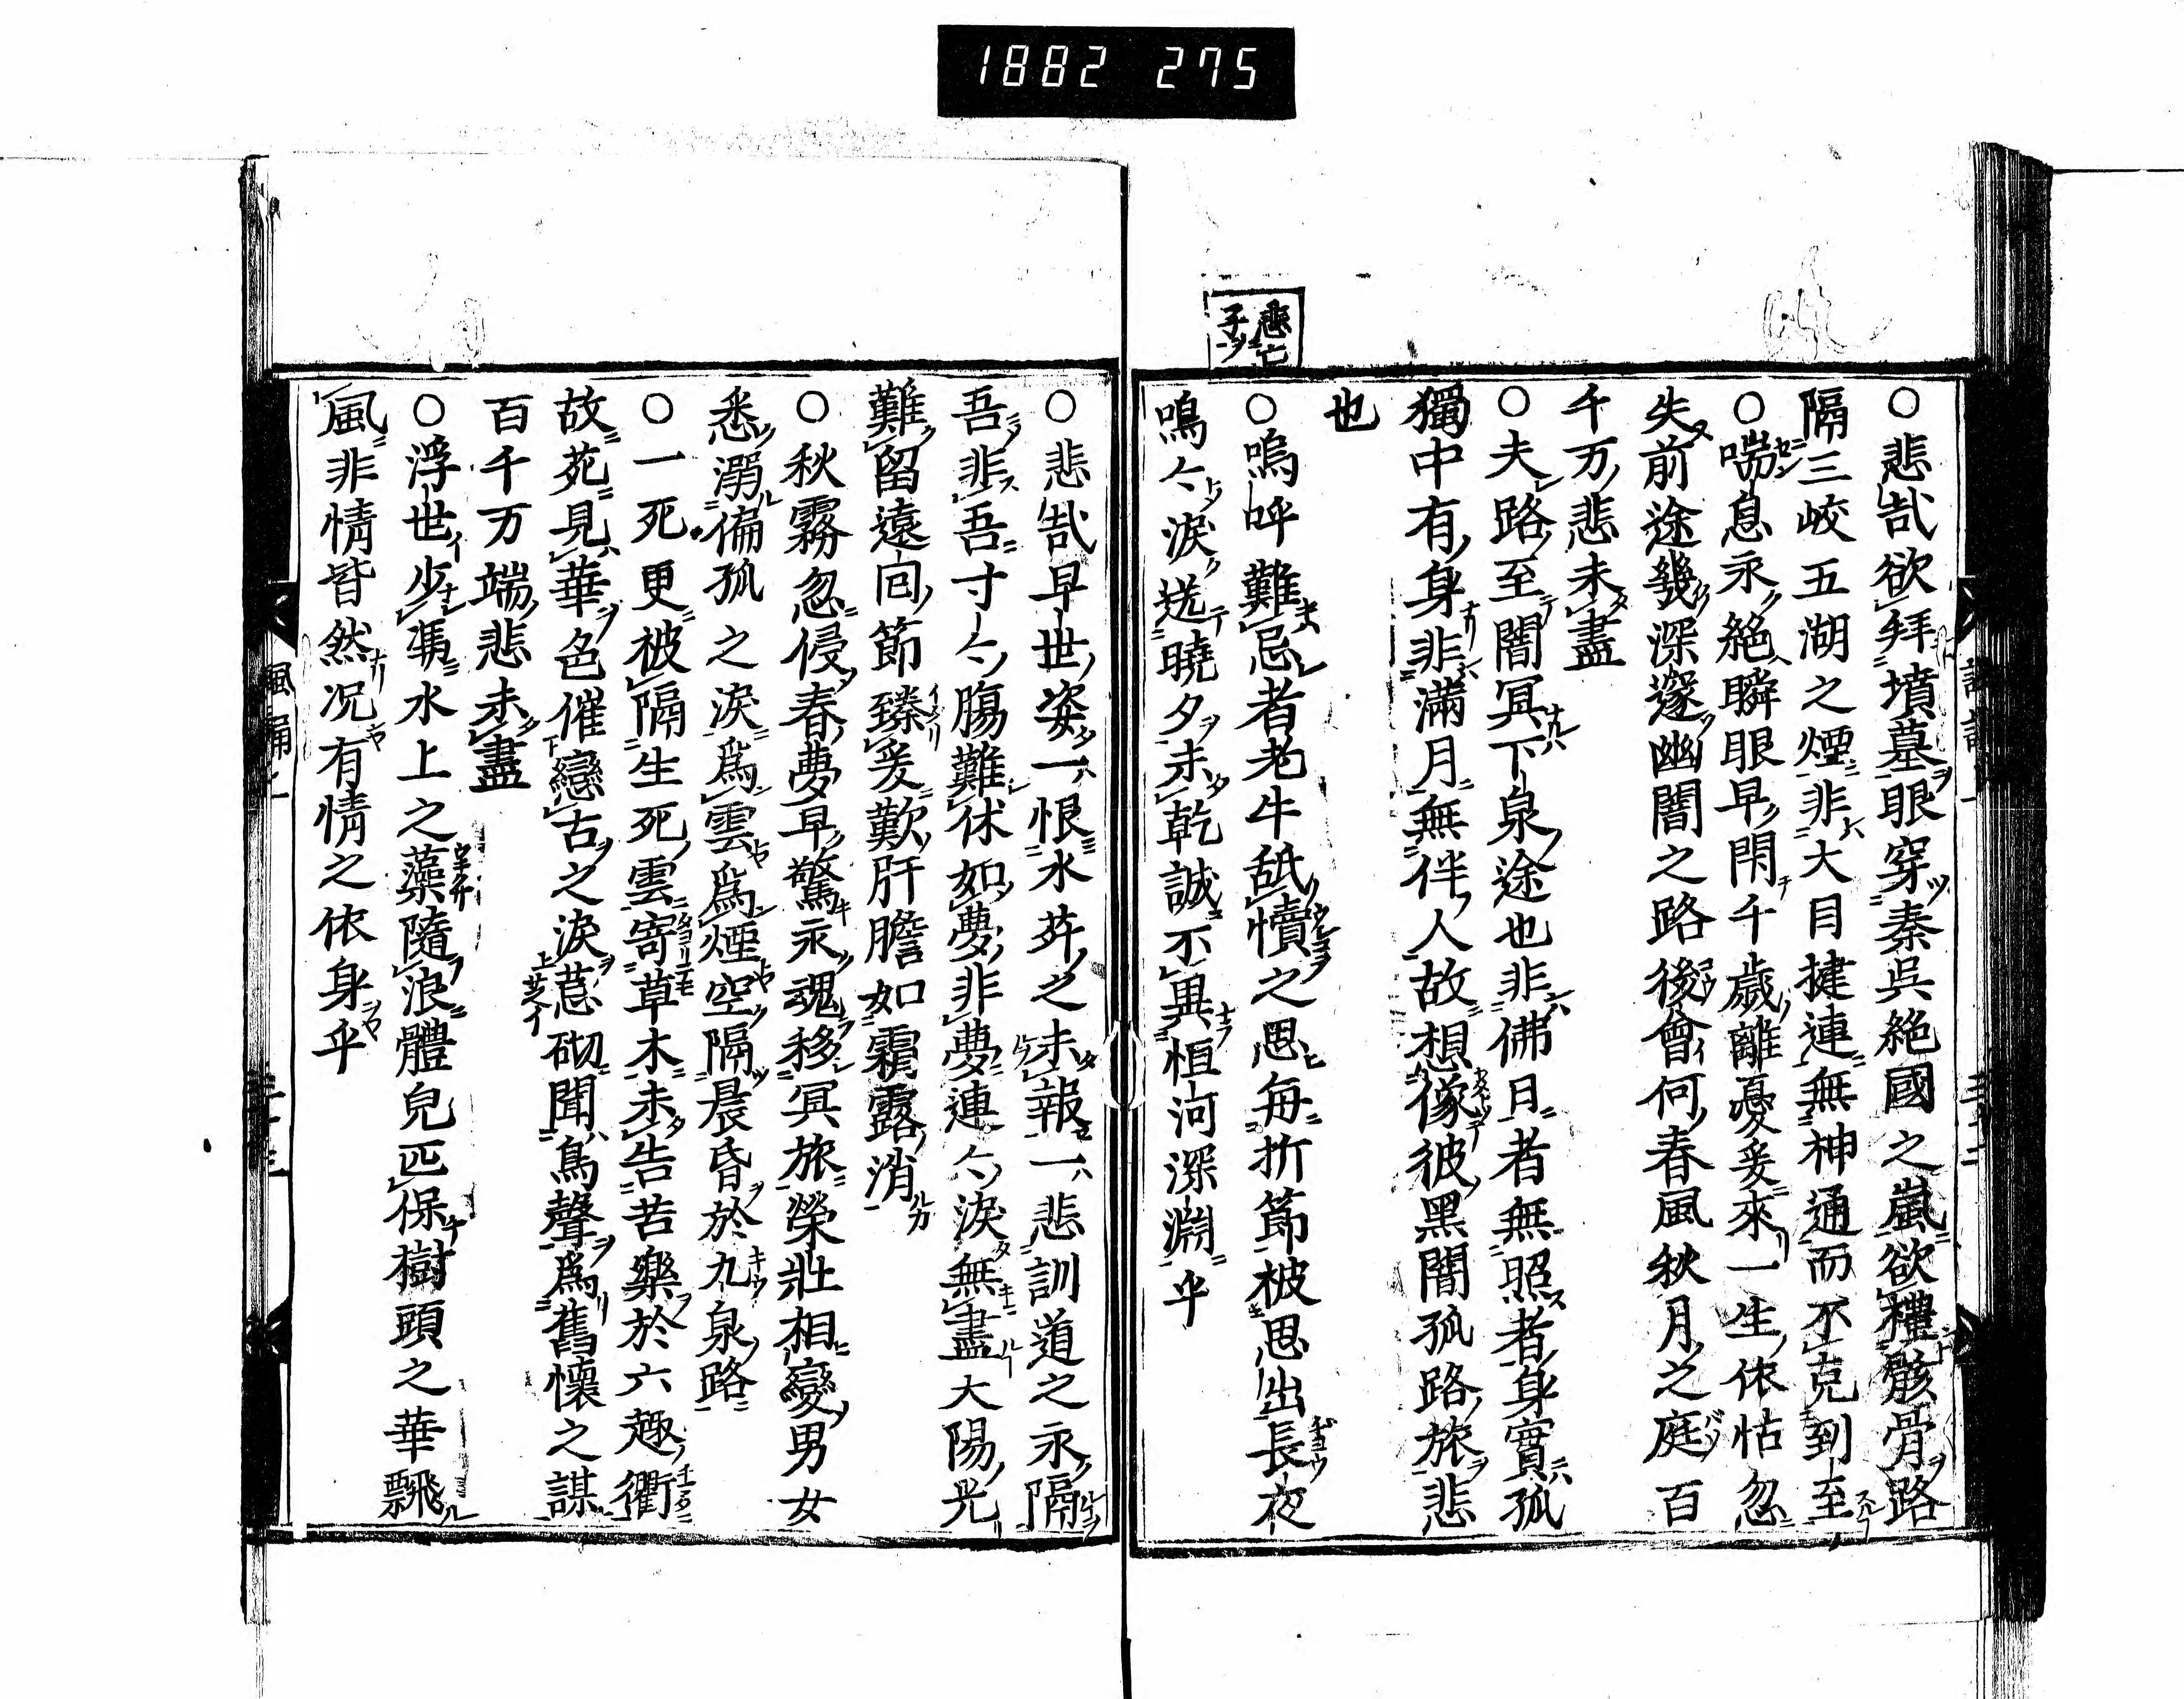 1882 275
○悲哉欲拜墳墓眼穿秦呉絶國之嵐欲禮骸骨路
隔三峡五湖之煙非大目揵連無神通而不克到至
○喘息永絶瞬眼早閇千歳離憂爰來一生依怙忽
失前途幾深邃幽闇之路後會何春風秋月之庭百
千万悲未盡
○夫路至闇冥下泉途也非佛日者無照者身實孤
獨中有身非滿月無伴人故想像彼黒闇孤路旅悲
也
悲亡子
○嗚呼難忌者老牛舐犢之思毎折節被思出長夜
鳴〻涙送曉夕未乾誠不異恒河深淵乎
○悲哉早世姿一恨水菽之未報一悲訓道之永隔
吾非吾寸〻腸難休如夢非夢連〻涙無盡大陽光
難留遠囘節臻爰歎肝膽如霜露消
○秋霧忽侵春夢早驚永魂移冥旅榮壯相變男女
悉溺偏孤之涙爲雲爲煙空隔晨昏於九泉路
○一死更被隔生死雲寄草木未告苦樂於六趣衢
故苑見華色催戀古之涙苔砌聞鳥聲爲舊懷之謀
百千万端悲未盡
○浮世少憑水上之藻隨浪體皃叵保樹頭之華飄
風非情皆然况有情之依身乎